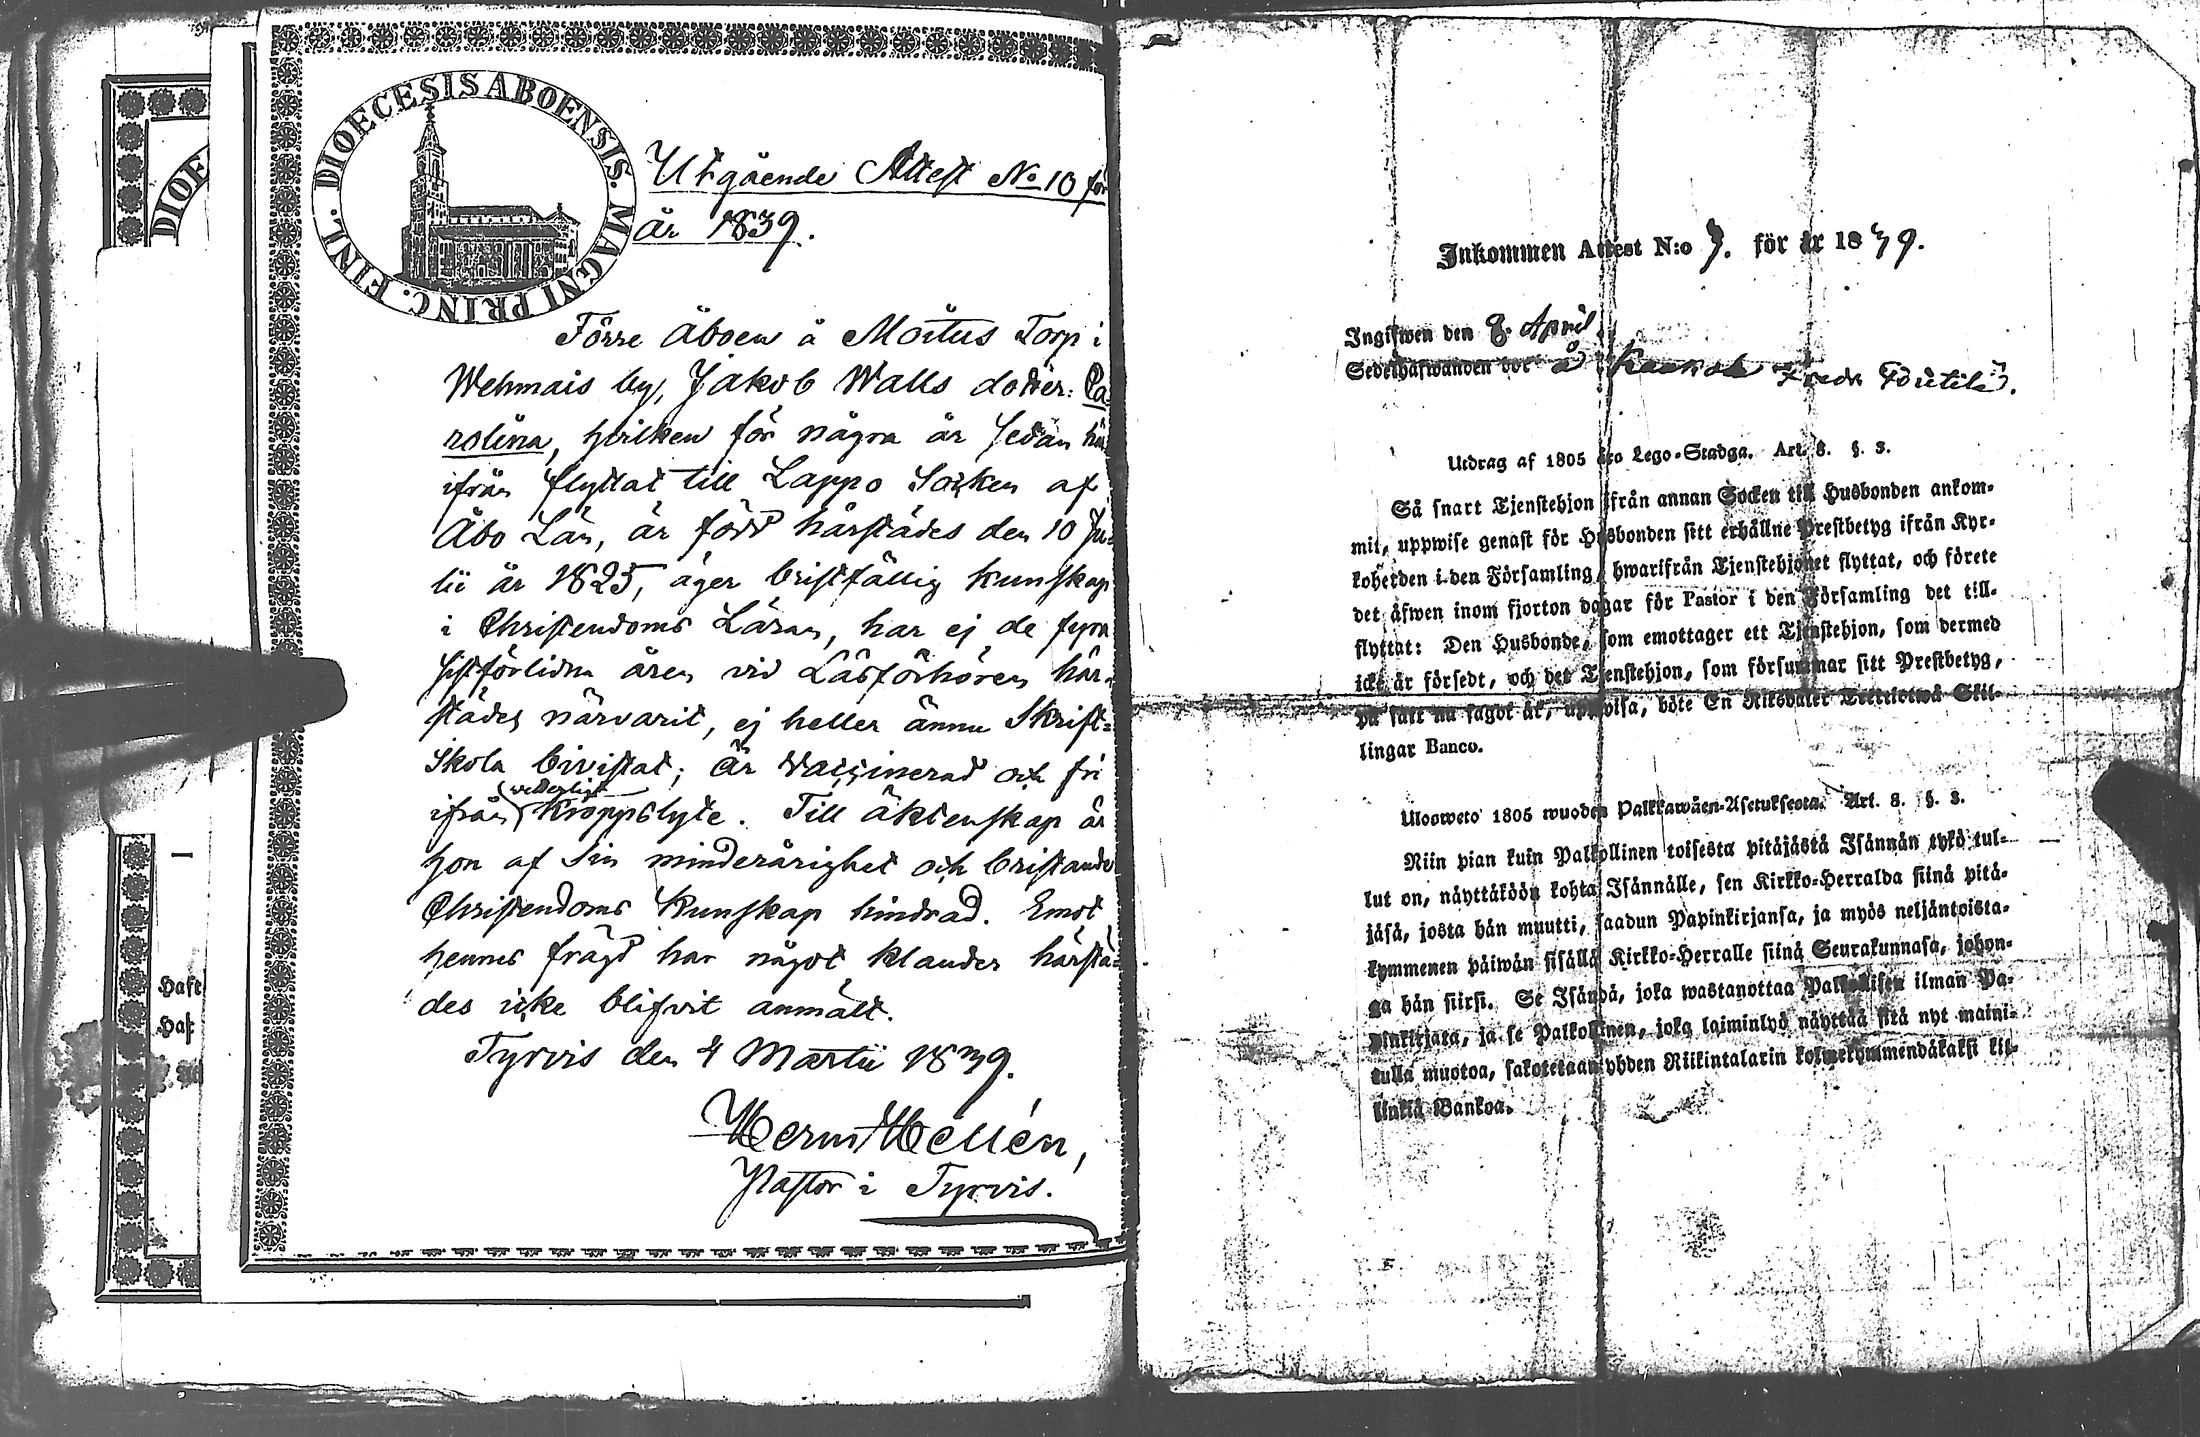 DIOE
Haf
Haf
DIOECESIS ABOENSIS. MAGNI PRINC. FINL.
Utgående Attest No 10 för
år 1839.
Förre Åboen å Moitus Torp i
Wehmais by, Jakob Walls dotter: Ca-
rolina, hvilken för några år sedan här
ifrån flyttat till Lappo Socken af
Åbo Län, är född härstädes den 10 Ju-
lii år 1825, äger bristfällig kunskap
i Christendoms Läran, har ej de fyra
sistförlidna åren vid Läsförhören här-
städes närvarit, ej heller ännu Skrift-
Skola bivistat; är vaccinerad och fri
ifrån vederligt Kroppslyte. Till äktenskap är
hon af sin minderårighet och bristande
Christendoms Kunskap hindrad. Emot
hennes frägd har något klander härstä-
des icke blifvit anmält.
Tyrvis den 4 Martii 1839.
Herm Hellén,
Pastor i Tyrvis.
Inkommen Attest N:o 7. för år 1839.
Ingifwen den 8. April
Sedelhafwanden bor å
Utdrag af 1805 års Lego-Stadga. Art. 8. §. 3.
Så snart Tjenstehjon ifrån annan Socken till Husbonden ankom-
mit, uppwise genast för Husbonden sitt erhållne Prestbetyg ifrån Kyr-
koherden i den Församling, hwarifrån Tjenstehjonet flyttat, och förete
det äfwen inom fjorton dagar för Pastor i den Församling det till-
flyttat: Den Husbonde, som emottager ett Tjenstehjon, som dermed
icke är försedt, och det Tjenstehjon, som försummar sitt Prestbetyg,
på sätt nu sagdt är, uppvisa, böte En Riksdaler Trettiotwå Skil-
lingar Banco.
Ulosweto 1805 wuoden Palkkawäen-Asetuksesta. Art. 8. §. 3.
Niin pian kuin Palkollinen toisesta pitäjästä Isännän tykö tul-
lut on, näyttäköön kohta Isännälle, sen Kirkko-Herralda siinä pitä-
jäsä, josta hän muutti, saadun Papinkirjansa, ja myös neljäntoista-
kymmenen päiwän sisällä Kirkko-Herralle siinä Seurakunnasa, johon-
ga hän siirsi. Se Isändä, joka wastanottaa Palkollisen ilman Pa-
pinkirjata, ja se Palkollinen, joka laiminlyö näyttää sitä nyt maini-
tulla muotoa, sakotetaan yhden Riikintalarin kolmekymmendäkaksi kil-
linkiä Bankoa.